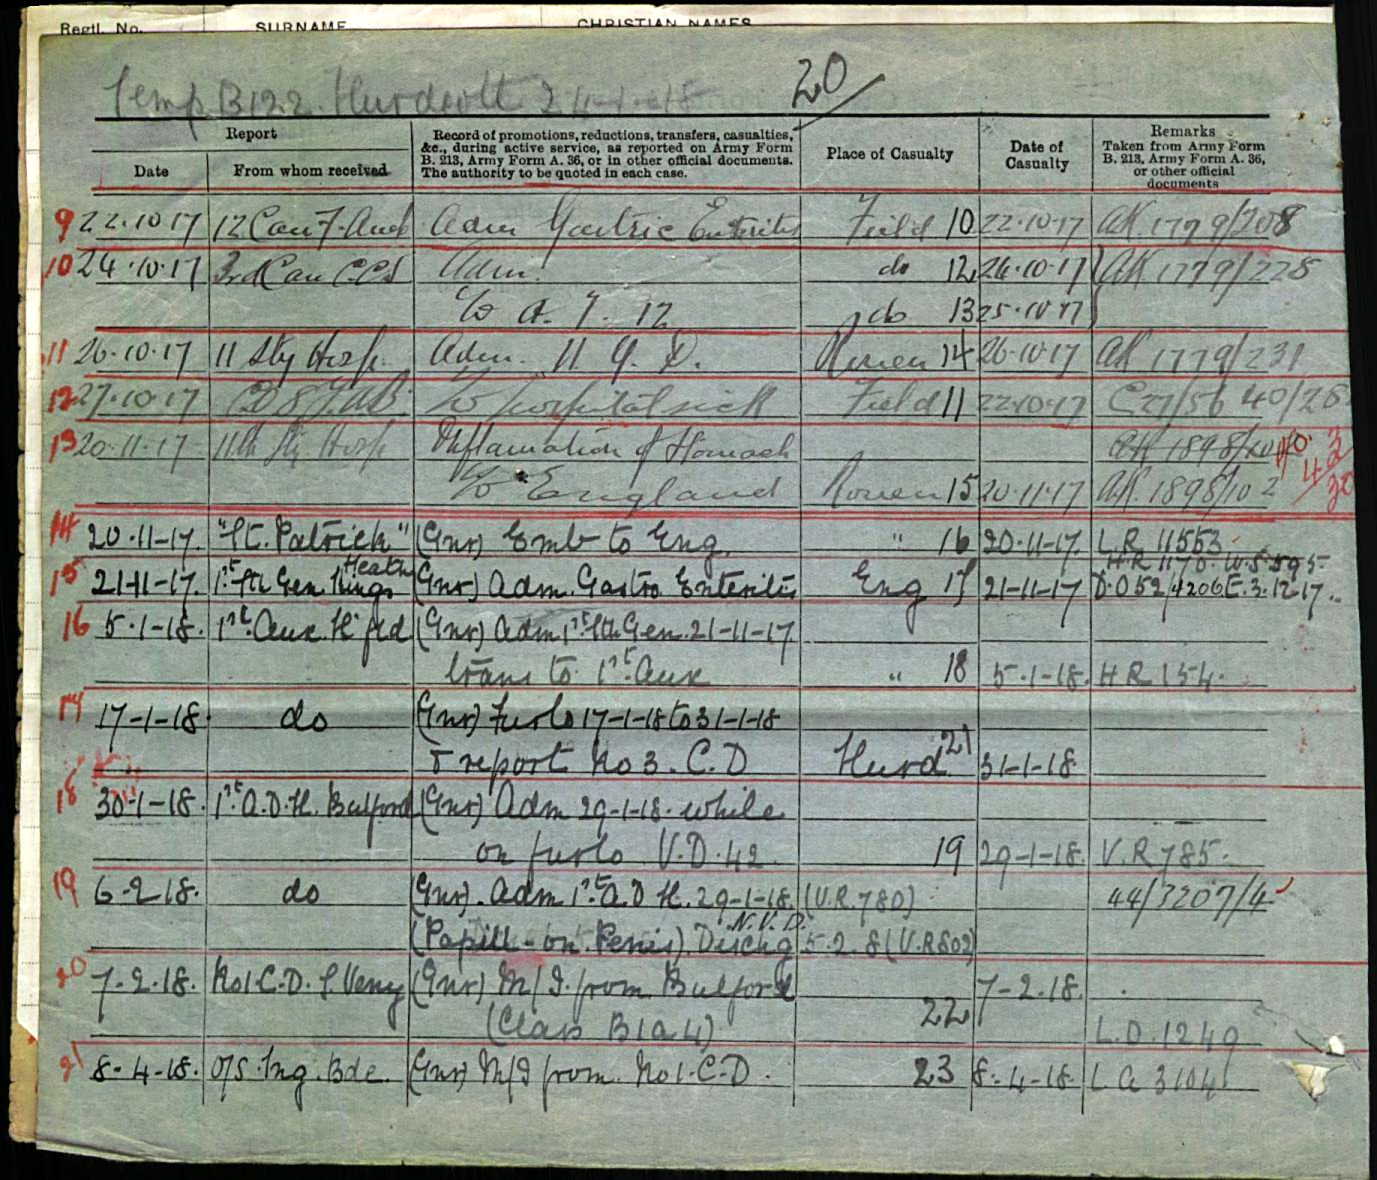 Regtl. No. SURNAME CHRISTIAN NAMES
Temp B122. Hurdcott 24-1-18 20
Report
Date
From whom received
Record of promotions, reductions, transfers, casualties,
&c., during active service, as reported on Army Form
B. 213, Army Form A. 36, or in other official documents.
The authority to be quoted in each case.
Place of Casualty
Date of
Casualty
Remarks
Taken from Army Form
B. 213, Army Form A. 36,
or other official
documents
9 22.10.17 12 Can F. Amb Adm Gastric Enteritis Field 10 22.10.17 AK 1779/208
10 24.10.17 3rd Can CCS Adm. do 12 24.10.17 AK 1779/228
To A. T. 12 do 13 25.10.17
11 26.10.17 11 Sty Hosp. Adm. Rouen 14 26.10.17 AK 1779/231
12 27.10.17 To hospital sick Field 11 22.10.17 C27/56 40/28
13 20.11.17 11th Sty Hosp Inflamation of Stomach AK 1898/
To England Rouen 15 20.11.17 AK. 1898/102
14 20-11-17. "St. Patrick" (Gnr) Emb to Eng. " 16 20-11-17. L.R 11553
H.R 1170. W.S 595.
15 21-11-17. 1st Sth Gen Kings Heath (Gnr) Adm. Gastro Enteritis Eng 17 21-11-17 D.O 52/4206E. 3.12.17..
16 5-1-18. 1st Aux. H'fld (Gnr) Adm 1st Sth Gen. 21-11-17
trans to 1st Aux " 18 5.1-18. H R 154.
17 17-1-18 do (Gnr) Furlo 17-1-18 to 31-1-18
& report No 3. C.D Hurd 21 31-1-18
18 30-1-18. 1st A.D.H. Bulford (Gnr) Adm 29-1-18. while
on furlo V.D. 42 19 29-1-18. V.R 785.
19 6-2-18. do (Gnr). Adm 1st A.D H. 29-1-18. (V.R. 780) 44/3207/4
N.V.D.
(Papill- on Penis). Dischg 5.2.8 (V.R 802)
20 7-2-18. No1.C.D. S. Veny (Gnr) M/I. from Bulford 7-2-18.
(Class B1a 4) 22 L.D. 1249
21 8-4-18. O/S. Ing. Bde. (Gnr) M/I from No1.C-D. 23 8-4-18. L A 3104